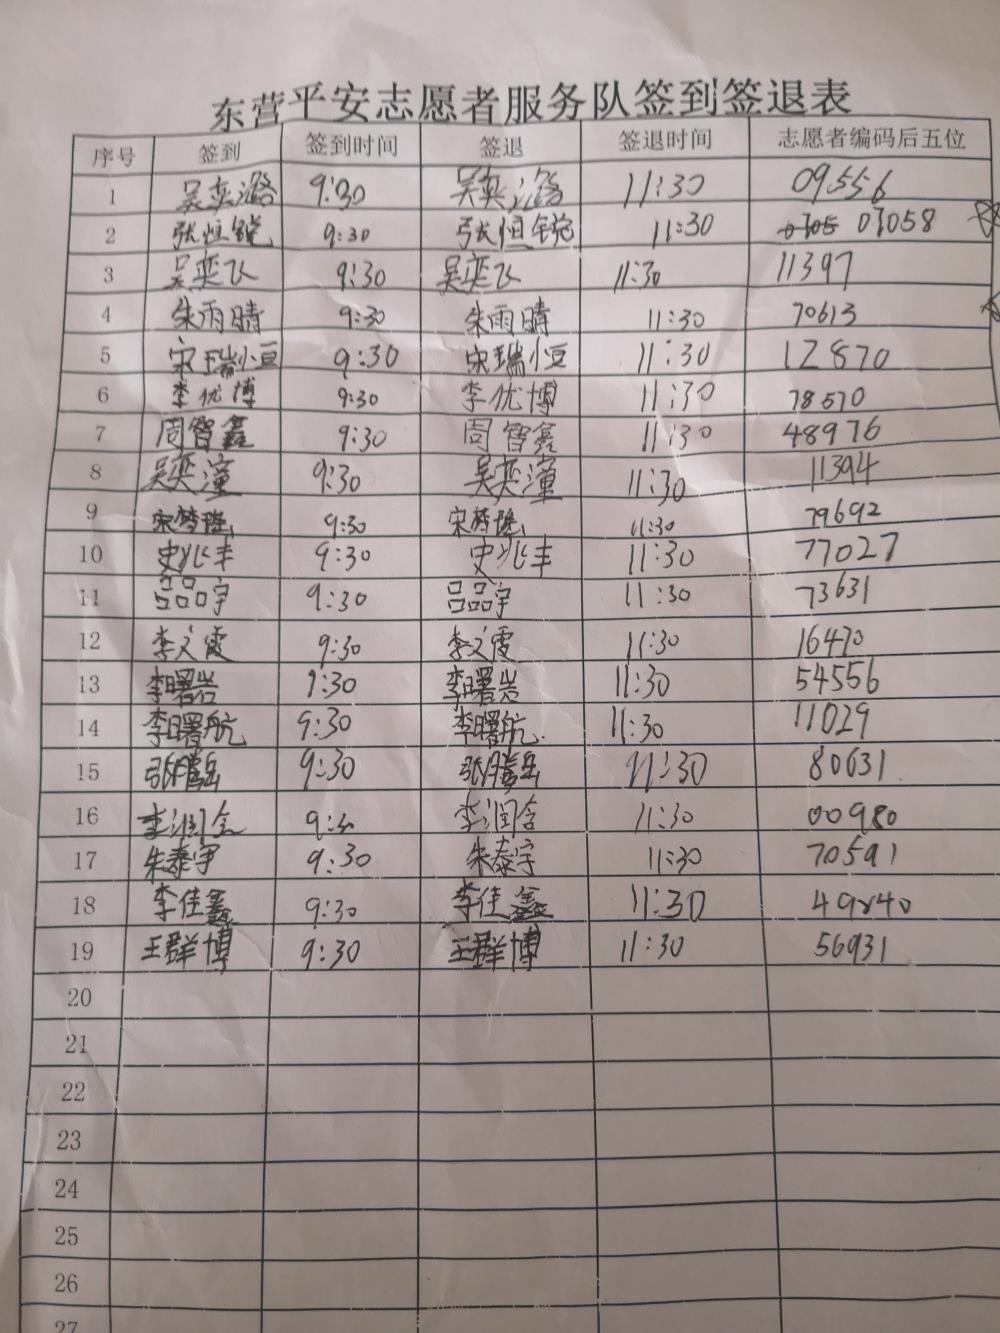 东营平安志愿者服务队签到签退表
序号 签到 签到时间 签退 签退时间 志愿者编码后五位
1 吴奕潞 9:30 吴奕潞 11:30 09556
2 张恒锐 9:30 张恒锐 11:30 07058
3 吴奕飞 9:30 吴奕飞 11:30 11397
4 朱雨晴 9:30 朱雨晴 11:30 70613
5 宋瑞恒 9:30 宋瑞恒 11:30 12870
6 李优博 9:30 李优博 11:30 78570
7 周智鑫 9:30 周智鑫 11:30 48976
8 吴奕潼 9:30 吴奕潼 11:30 11394
9 宋梦瑶 9:30 宋梦瑶 11:30 79692
10 史兆丰 9:30 史兆丰 11:30 77027
11 吕品宇 9:30 吕品宇 11:30 73631
12 李文霞 9:30 李文霞 11:30 16470
13 李曙岩 9:30 李曙岩 11:30 54556
14 李曙航 9:30 李曙航 11:30 11029
15 张腾岳 9:30 张腾岳 11:30 80631
16 李润含 9:30 李润含 11:30 00980
17 朱泰宇 9:30 朱泰宇 11:30 70591
18 李佳鑫 9:30 李佳鑫 11:30 49240
19 王群博 9:30 王群博 11:30 56931
20
21
22
23
24
25
26
27